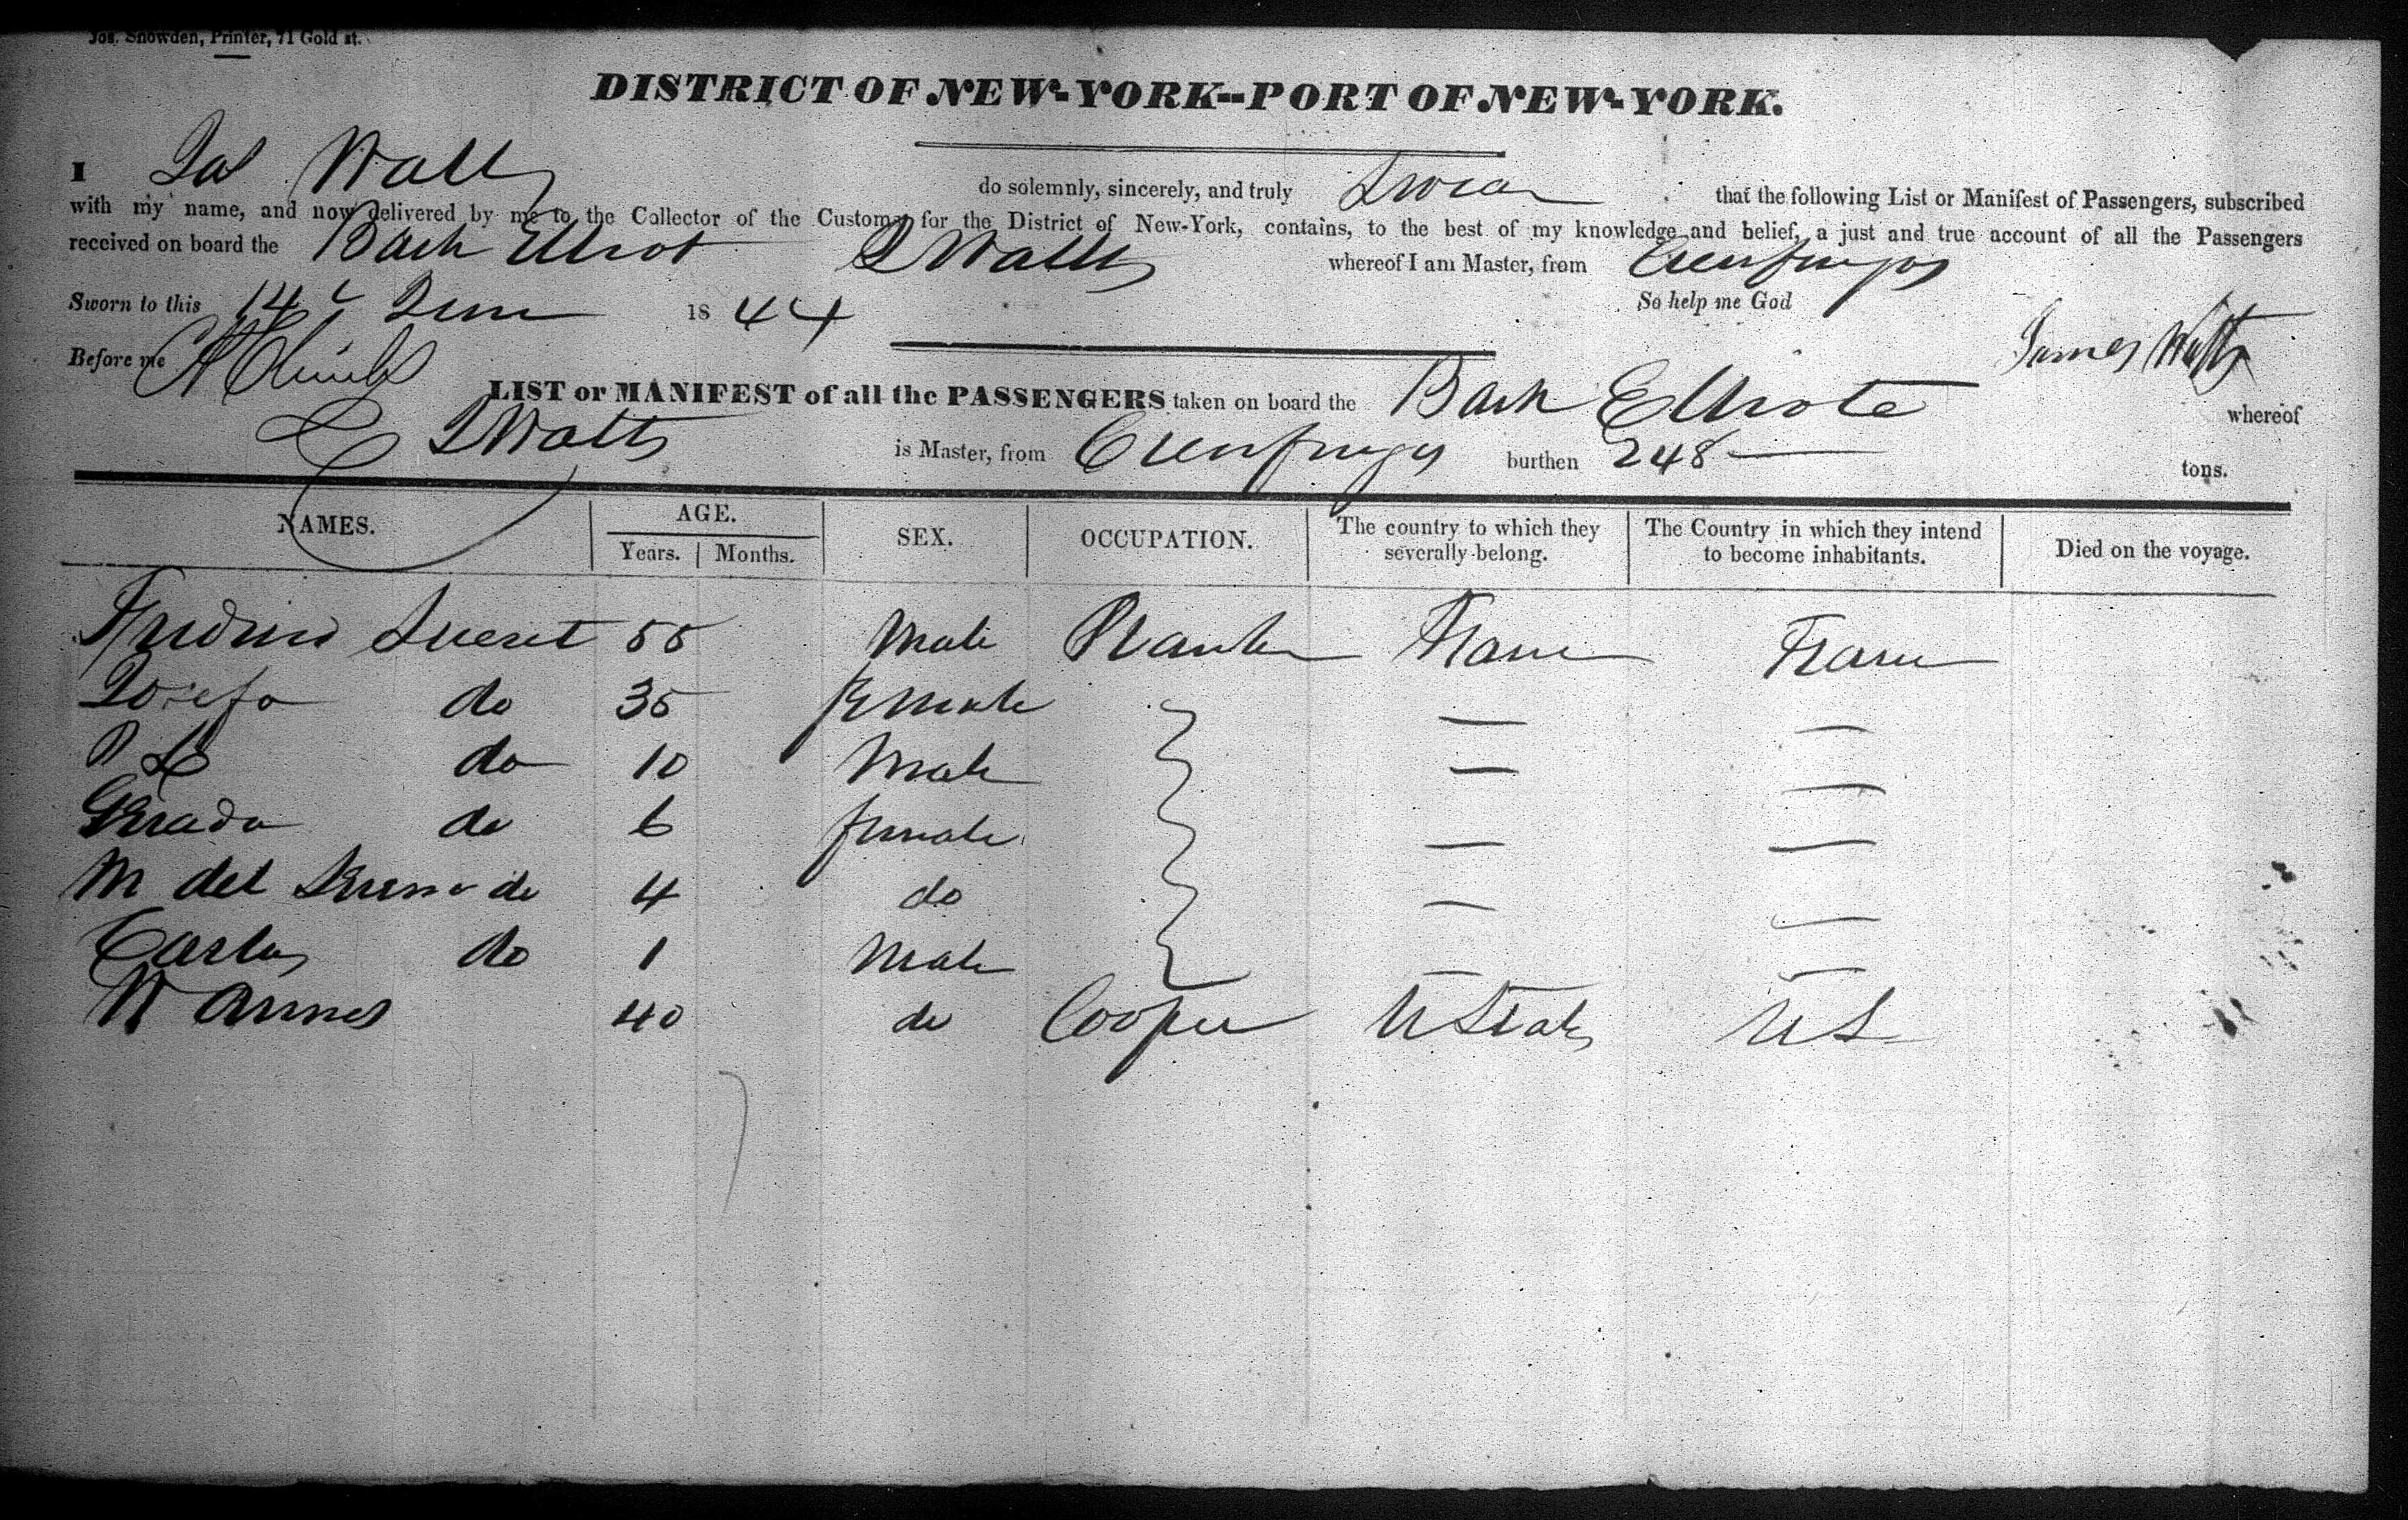 Jos. Snowden, Printer, 71 Gold st.
DISTRICT OF NEW-YORK--PORT OF NEW-YORK.
I Jas Watts do solemnly, sincerely, and truly Swear that the following List or Manifest of Passengers, subscribed
with my name, and now delivered by me to the Collector of the Customs for the District of New-York, contains, to the best of my knowledge and belief, a just and true account of all the Passengers
received on board the Bark Elliot J Watts whereof I am Master, from Cienfuegos
Sworn to this 14 June 1844 So help me God
Before me James Watts
LIST or MANIFEST of all the PASSENGERS taken on board the Bark Elliote whereof
J Watts is Master, from Cienfuegos burthen 248 tons.
NAMES. AGE. Years. Months. SEX. OCCUPATION. The country to which they severally belong. The Country in which they intend to become inhabitants. Died on the voyage.
55 Male Planter France France
Josefa do 35 Female — —
do 10 Male — —
do 6 female — —
M del do 4 do — —
Carlos do 1 Male — —
40 do Cooper U States U S